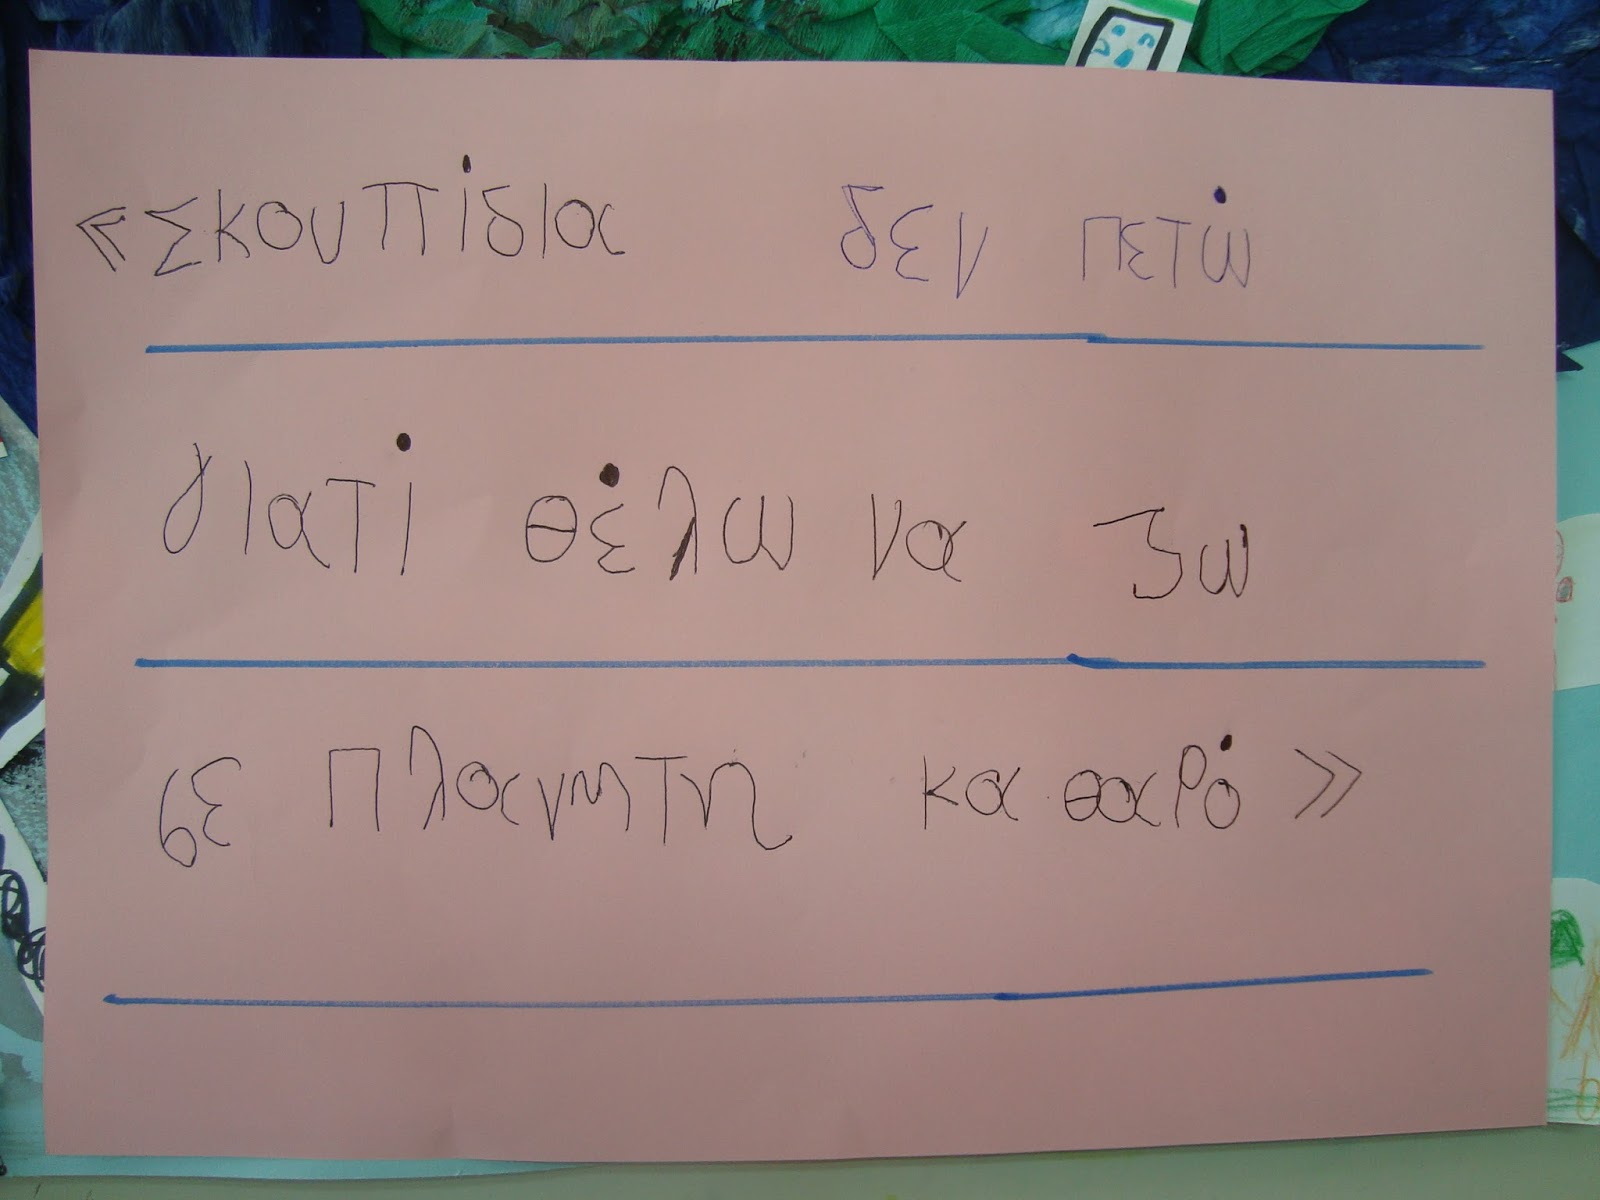 «Σκουπίδια δεν πετώ
γιατί θέλω να ζω
σε πλανητη καθαρό»